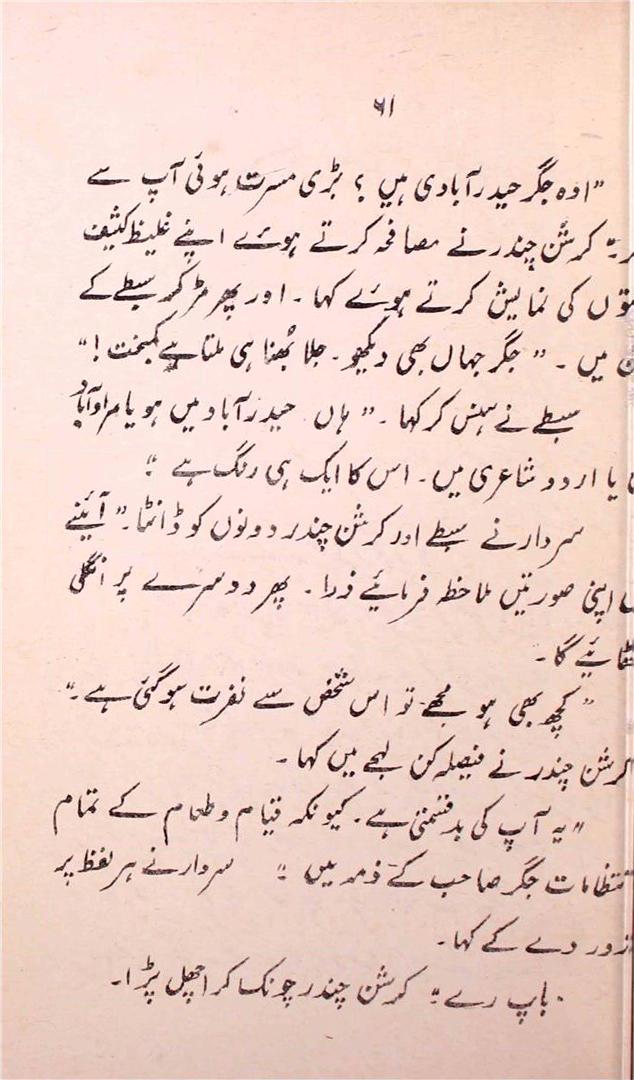 ۶۱
"اوہ جگر حیدرآبادی ہیں ؟ بڑی مسرت ہوئی آپ سے
کرشن چندر نے مصافحہ کرتے ہوئے اپنے غلیظ کثیف
کی نمایش کرتے ہوئے کہا ۔ اور پھر مڑ کر سبطے کے
میں ۔ " جگر جہاں بھی دیکھو ۔ جلا بُھنا ہی ملتا ہے کمبخت ! "
سبطے نے ہنس کر کہا ۔ " ہاں حیدرآباد میں ہو یا مرادآباد
یا اردو شاعری میں ۔ اس کا ایک ہی رنگ ہے ۔"
سردار نے سبطے اور کرشن چندر دونوں کو ڈانٹا ۔ " آئینے
اپنی صورتیں ملاحظہ فرمائیے ذرا ۔ پھر دوسرے پر انگلی
گا ۔
" کچھ بھی ہو مجھے تو اس شخص سے نفرت ہو گئی ہے ۔"
کرشن چندر نے فیصلہ کن لہجے میں کہا ۔
" یہ آپ کی بدقسمتی ہے ۔ کیونکہ قیام و طعام کے تمام
انتظامات جگر صاحب کے ذمہ ہیں ۔" سردار نے ہر لفظ پر
زور دے کے کہا ۔
باپ رے ۔" کرشن چندر چونک کر اچھل پڑا ۔